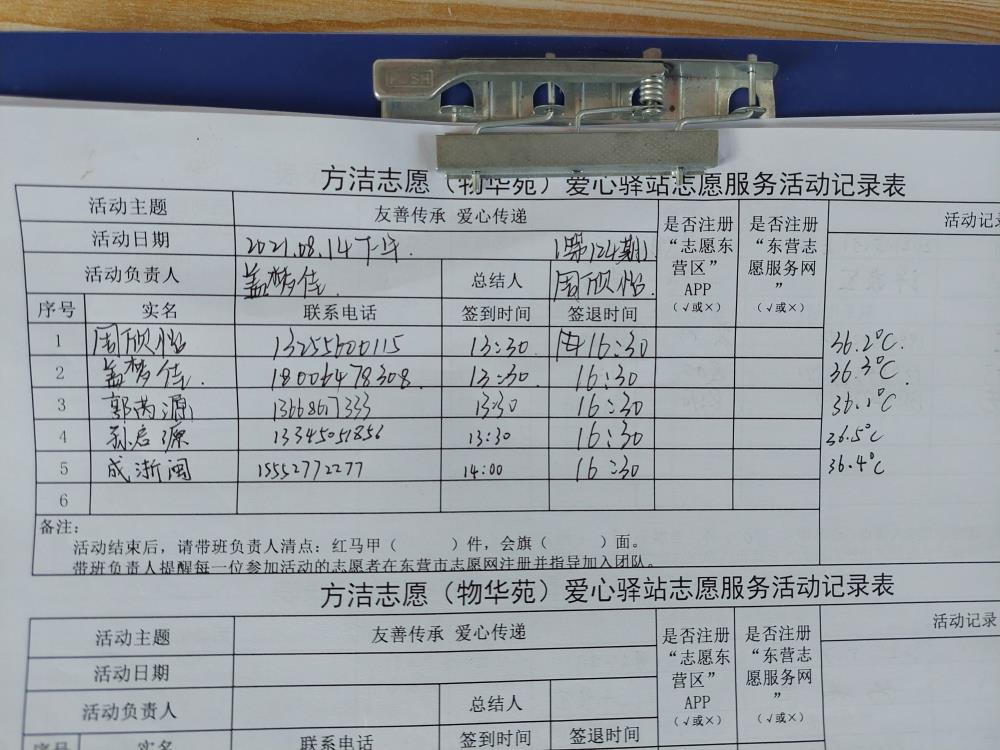 PUSH
方洁志愿（物华苑）爱心驿站志愿服务活动记录表
活动主题 友善传承 爱心传递 是否注册“志愿东营区”APP（√或×） 是否注册“东营志愿服务网”（√或×） 活动记
活动日期 2021.08.14下午. （第124期）
活动负责人 盖梦佳. 总结人 周欣怡.
序号 实名 联系电话 签到时间 签退时间
1 周欣怡 13255600115 13:30 16:30 36.2℃.
2 盖梦佳. 18006478308. 13:30. 16:30 36.3℃.
3 郭芮源 13668617333 13:30 16:30 36.1℃
4 孙启源 13345051856 13:30 16:30 36.5℃
5 成浙闽 15552772277 14:00 16:30 36.4℃
6
备注：
活动结束后，请带班负责人清点：红马甲（ ）件，会旗（ ）面。
带班负责人提醒每一位参加活动的志愿者在东营市志愿网注册并指导加入团队。
方洁志愿（物华苑）爱心驿站志愿服务活动记录表
活动主题 友善传承 爱心传递 是否注册“志愿东营区”APP（√或×） 是否注册“东营志愿服务网”（√或×） 活动记录
活动日期
活动负责人 总结人
序号 实名 联系电话 签到时间 签退时间